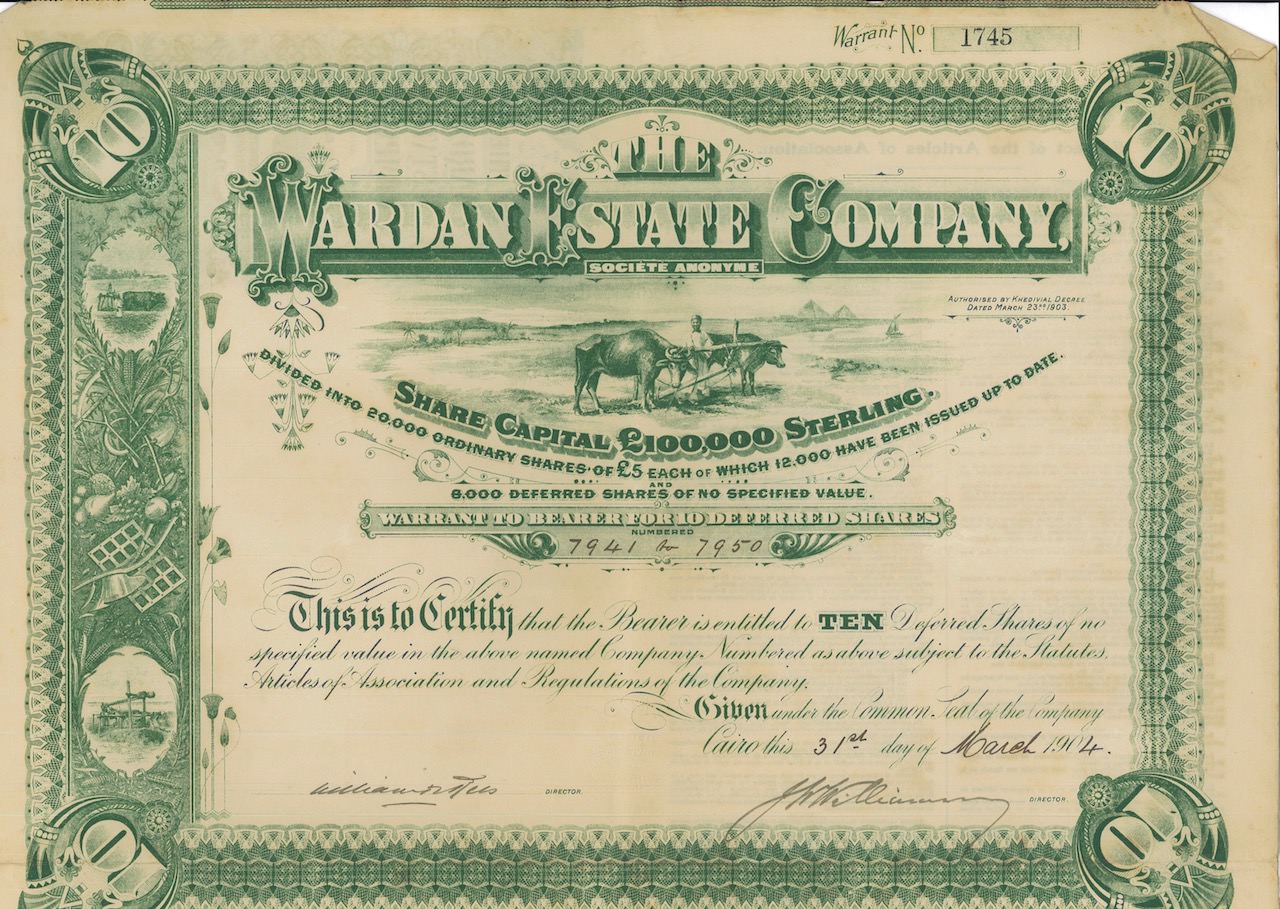 Warrant No. 1745
10
10
THE
WARDAN ESTATE COMPANY,
SOCIÉTÉ ANONYME
AUTHORISED BY KHEDIVIAL DECREE
DATED MARCH 23RD 1903.
SHARE CAPITAL £100,000 STERLING.
DIVIDED INTO 20,000 ORDINARY SHARES OF £5 EACH OF WHICH 12,000 HAVE BEEN ISSUED UP TO DATE.
AND
8,000 DEFERRED SHARES OF NO SPECIFIED VALUE.
WARRANT TO BEARER FOR 10 DEFERRED SHARES
NUMBERED
7941 to 7950
This is to Certify that the Bearer is entitled to TEN Deferred Shares of no
specified value in the above named Company. Numbered as above subject to the Statutes,
Articles of Association and Regulations of the Company.
Given under the Common Seal of the Company
Cairo this 31st day of March 1904.
DIRECTOR.
J W Williamson DIRECTOR.
10
10